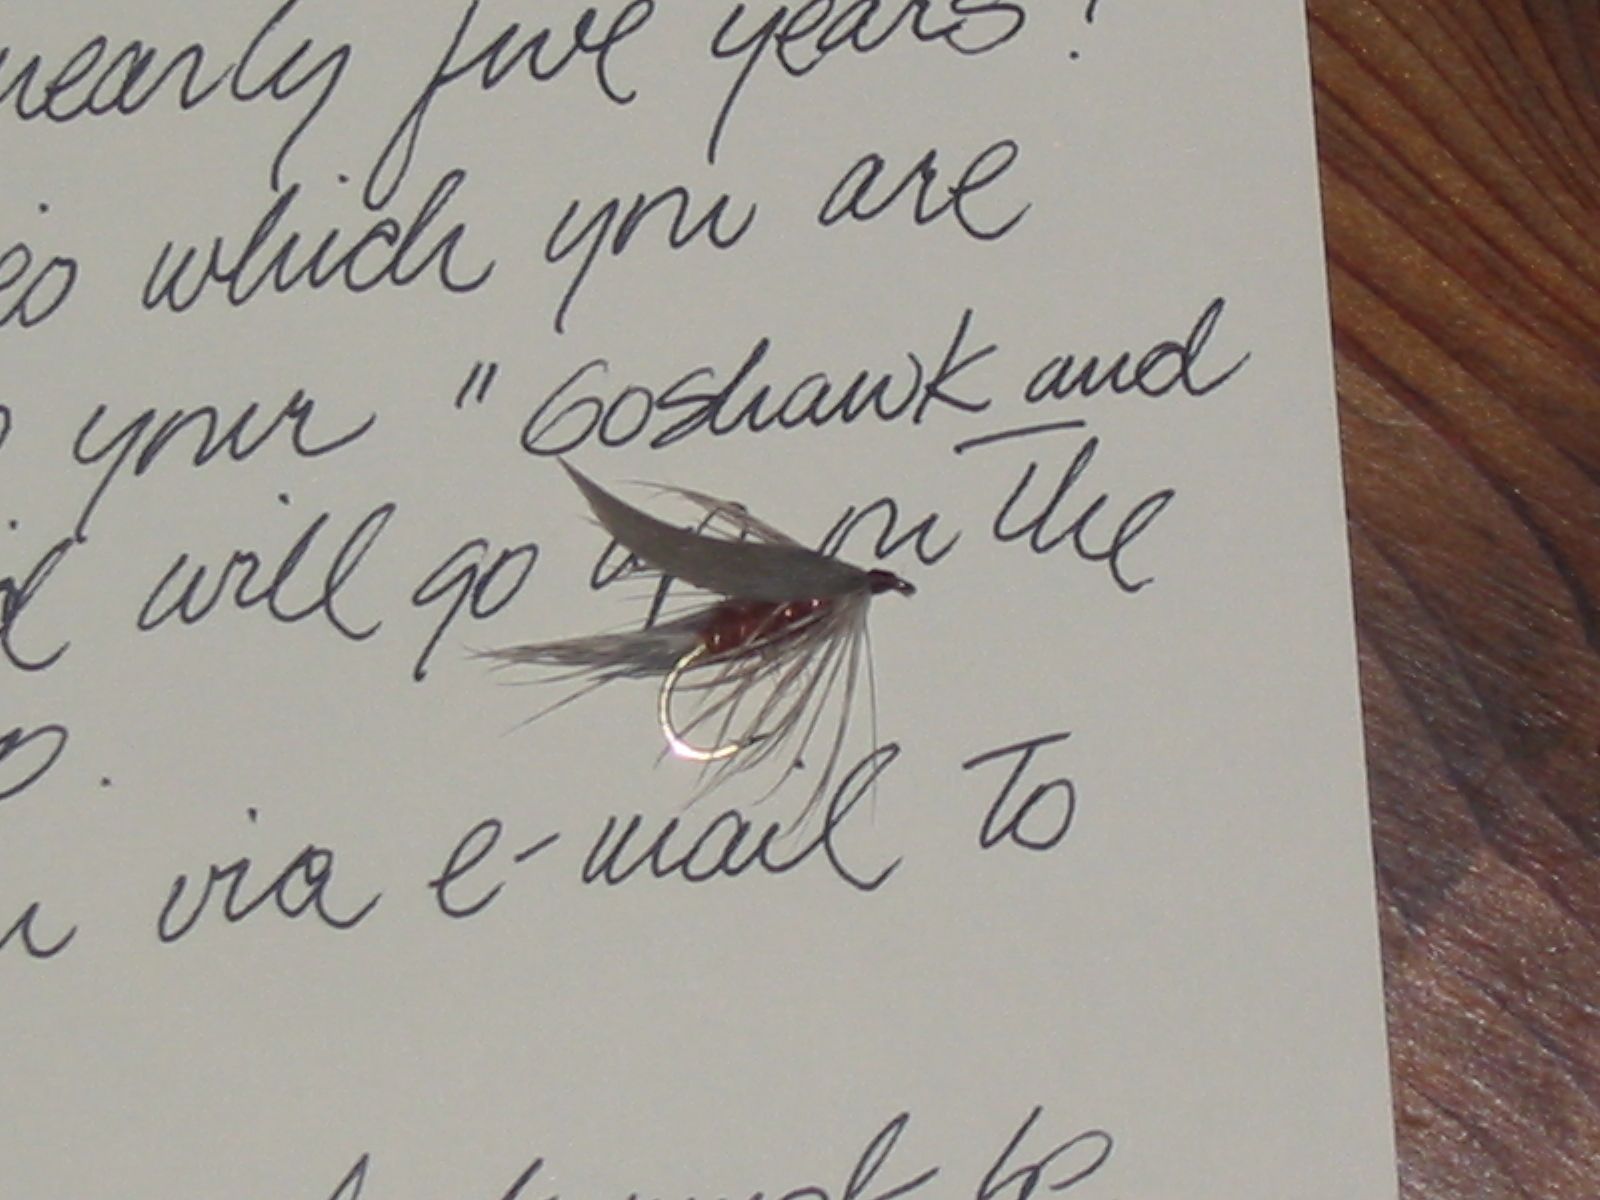 nearly five years!
which you are
your "Goshawk and
will go up on the
via e-mail to
to